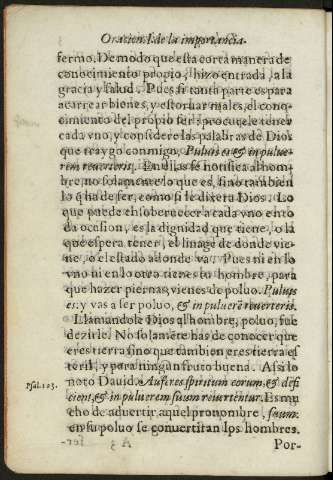 Oracion. I. de la importancia.
fermo. De modo que esta corta manera de
conocimiento propio, hizo entrada, a la
gracia y salud. Pues si tanta parte es para
acarrear bienes, y estoruar males, el cono-
cimiento del propio ser: procurele tener
cada vno, y considere las palabras de Dios
que traygo conmigo. Puluis es & in pulue-
rem reuerteris. En ellas se notifica al hom-
bre, no solamente lo que es, sino tambien
lo q̃ ha de ser, como si le dixera Dios. Lo
que puede ensoberuecer a cada vno en to
da ocasion, es la dignidad que tiene, o la
que espera tener, el linage de donde vie-
ne, o el estado adonde va. Pues ni en lo
vno ni en lo otro tienes tu hombre, para
que hazer piernas, vienes de poluo. Puluis
es. y vas a ser poluo, & in puluerẽ reuerteris.
Llamandole Dios al hombre, poluo, fue
dezirle. No solamẽte has de conocer que
eres tierra sino que tambien eres tierra es
teril, y para ningun fruto buena. Assi lo
noto Dauid. Auferes spiritum eorum, & defi
cient, & in puluerem suum reuertentur. Es mu
cho de aduertir, aquel pronombre, suum.
en su poluo se conuertiran los hombres.
Psal. 103.
Por-